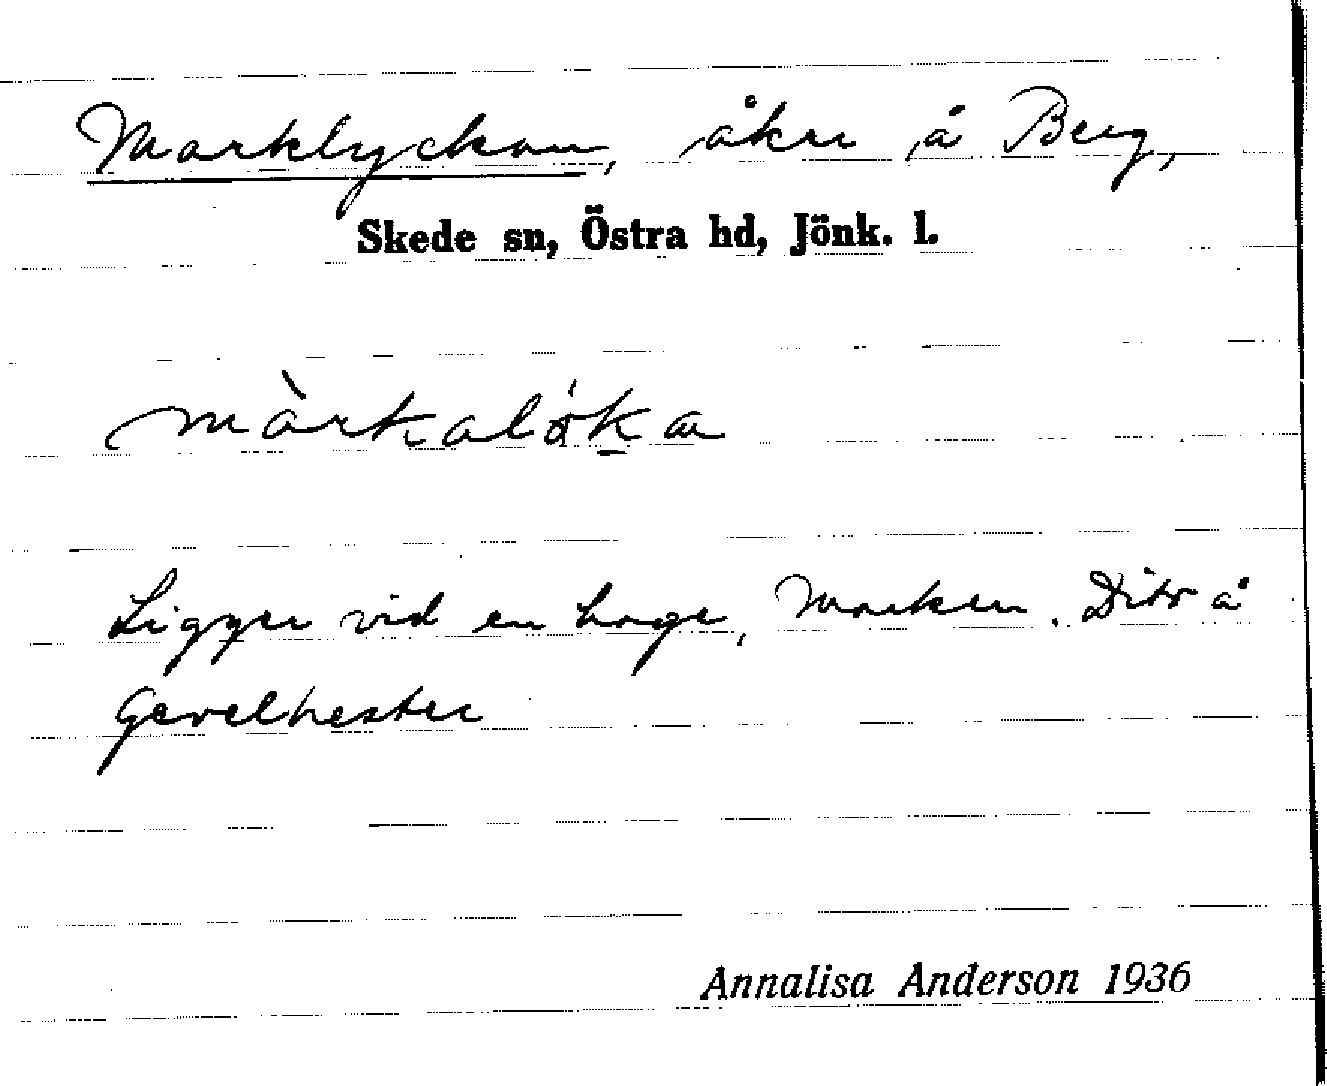 Marklyckan, åker å Berg,
Skede sn, Östra hd, Jönk. l.
màrkaló̱ka
Ligger vid en hage, Marken. Ditr å
Gevelhester
Annalisa Anderson 1936